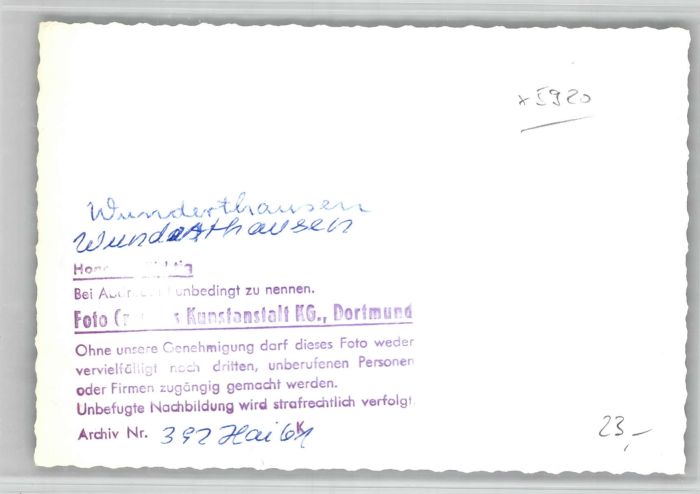 x 5920
Wunderthausen
Wunderthausen
Bei unbedingt zu nennen.
Foto Kunstanstalt KG., Dortmund
Ohne unsere Genehmigung darf dieses Foto weder
vervielfältigt noch dritten, unberufenen Personen
oder Firmen zugängig gemacht werden.
Unbefugte Nachbildung wird strafrechtlich verfolgt.
Archiv Nr. 392
23,-